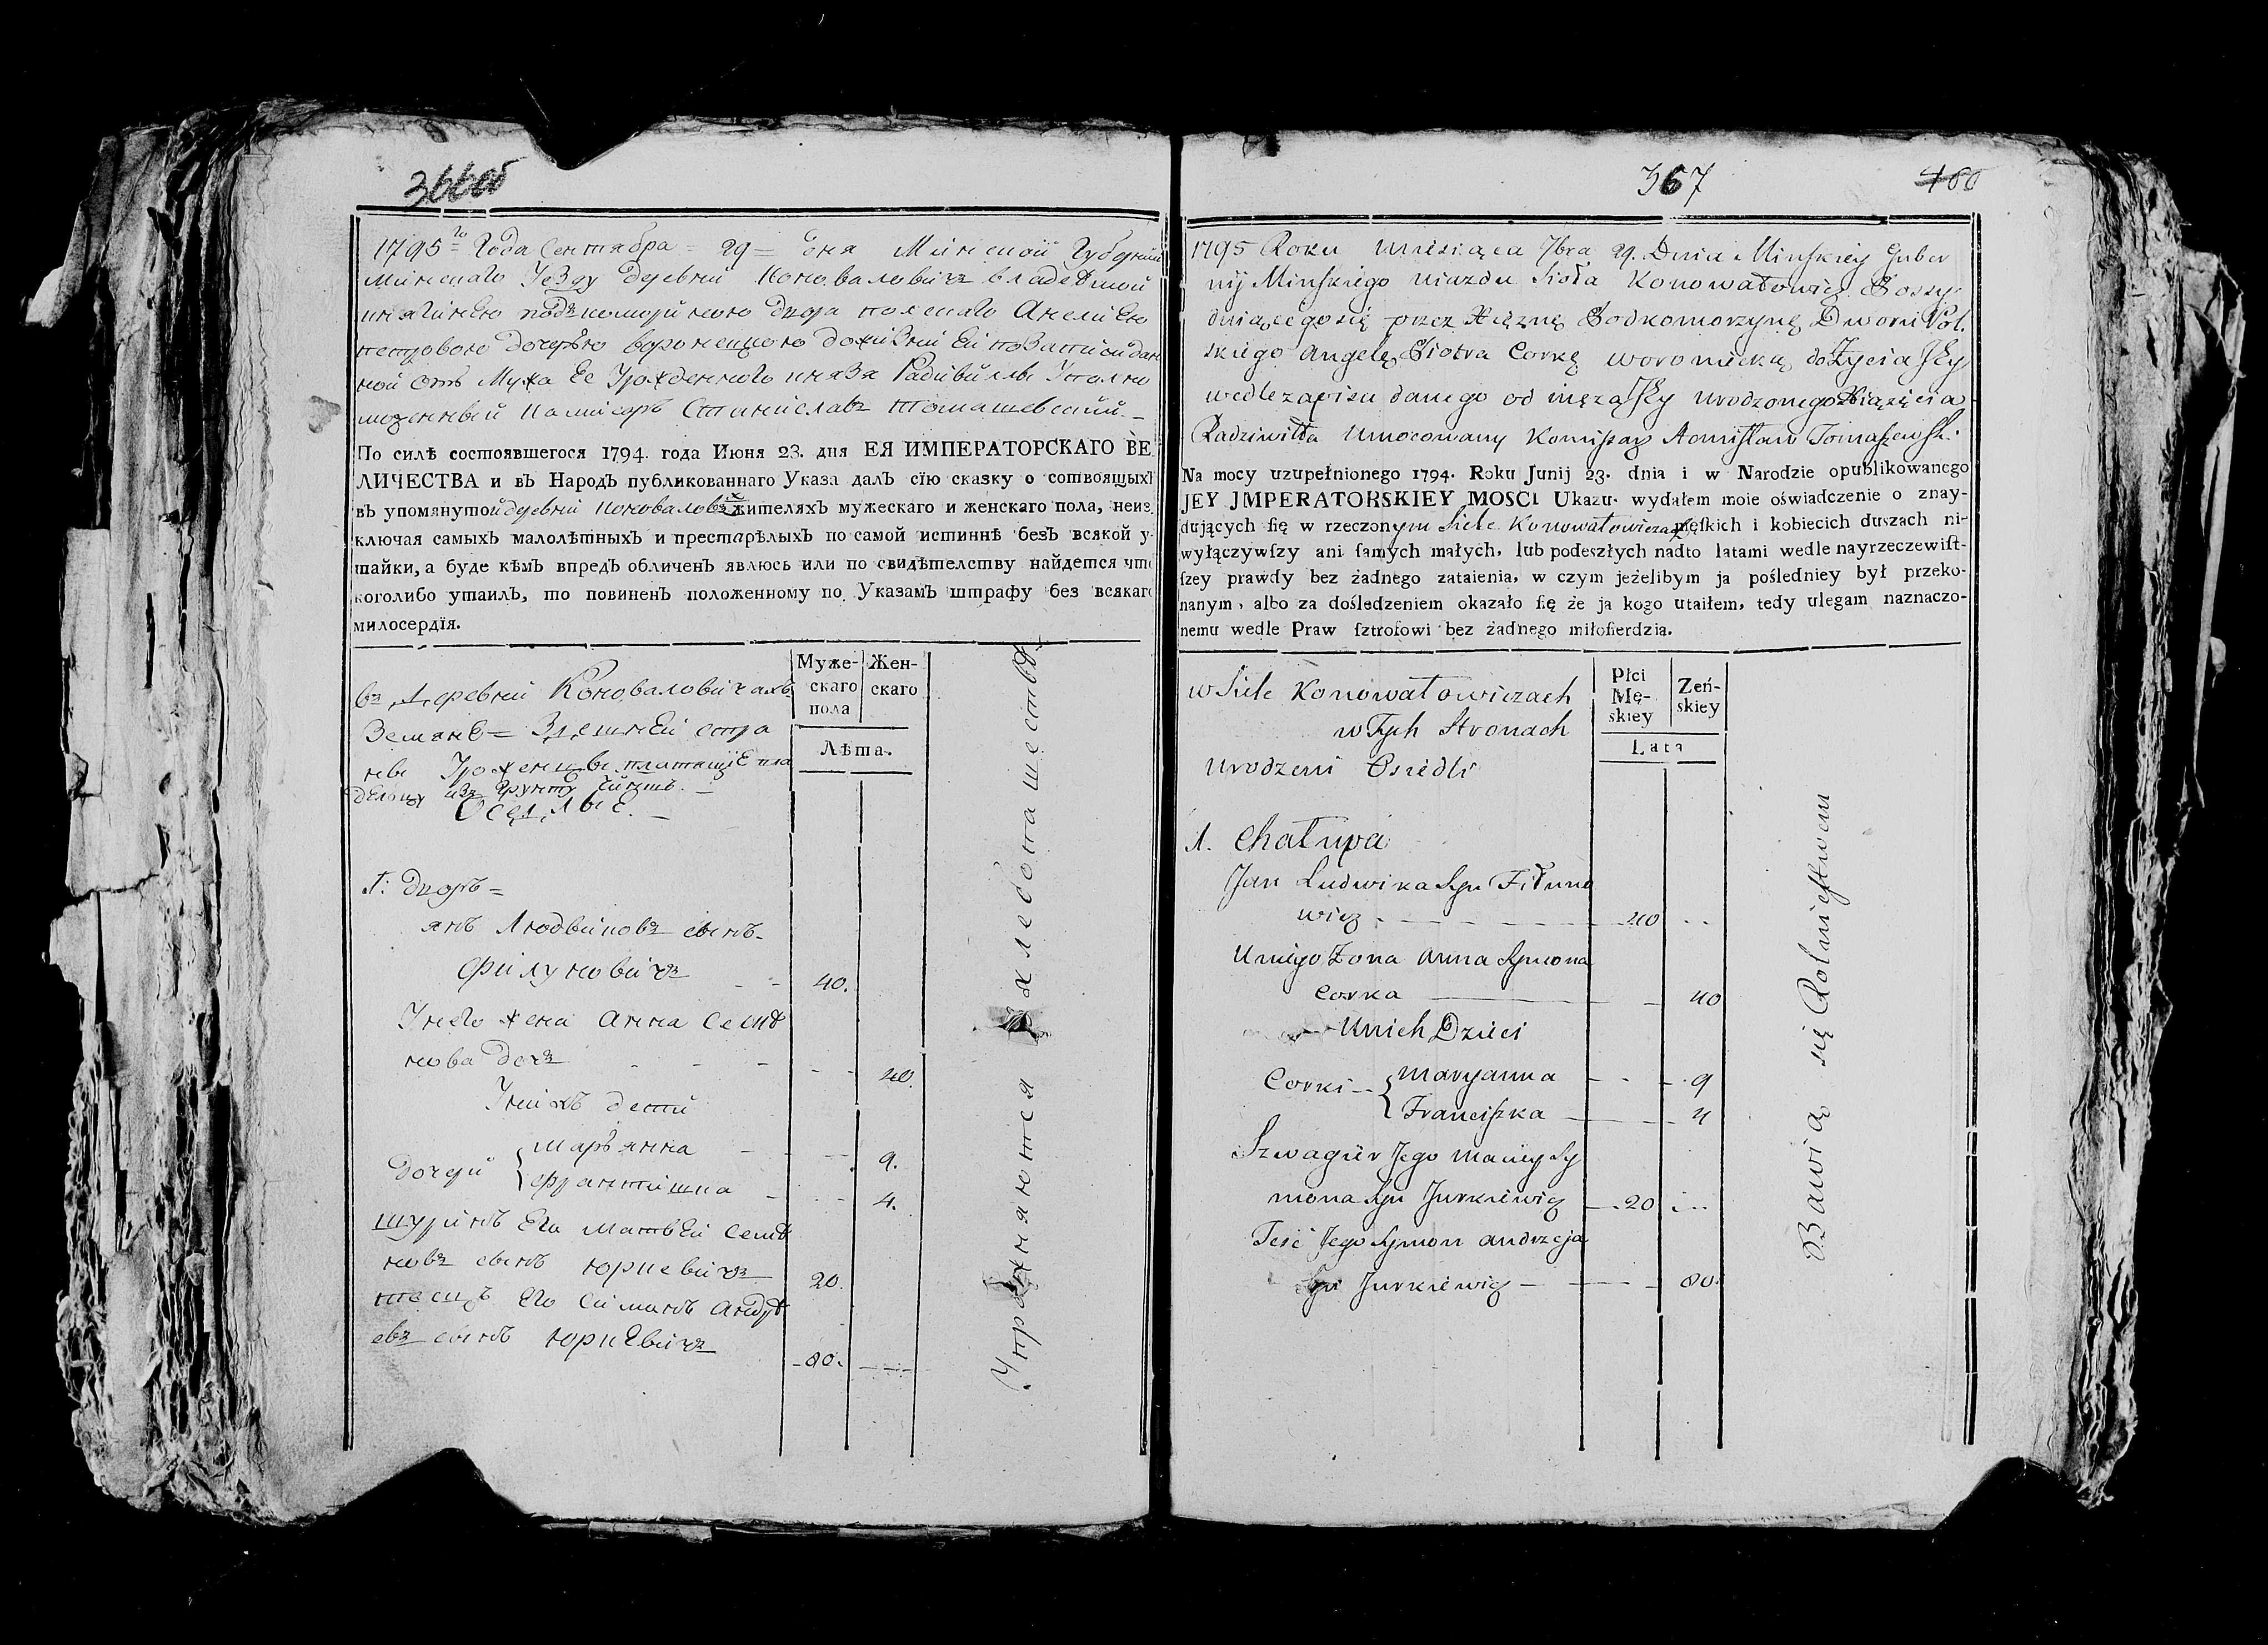 366об
1795го Года Сентября = 29 = дня Минской Губернии
Минскаго Уезду деревни Коновалович владемой
княгинею подкоморийною двора полскаго Анелиею
петровою дочерью воронецкою доживний Ей по запиой дан
ной отъ Мужа Ее Урожденного князя Радивиллы Уполно
моченный Комисаръ Станиславъ томашевский. –
По силѣ состоявшегося 1794. года Июня 23. дня ЕЯ ИМПЕРАТОРСКАГО ВЕ
ЛИЧЕСТВА и въ Народъ публикованнаго Указа далъ сїю сказку о сотвоящыхъ
въ упомянутой деревни Коновалов жителяхъ мужескаго и женскаго пола, неиз
ключая самыхъ малолѣтныхъ и престарѣлыхъ по самой истиннѣ безъ всякой у
тайки, а буде кѣмъ впредъ обличенъ явлюсь или по свидѣтелству найдется что
коголибо утаилъ, то повиненъ положенному по Указамъ штрафу без всякаго
милосердїя.
Муже-
скаго
пола
Жен-
скаго
Лѣта.
въ Деревни Коноваловичахъ
Земяне = Здешней сторо
ны Уроженцы платящие вла
дельцу изъ грунту чиншъ. –
Оседлые. –
1: дворъ =
янъ Людвиковъ сынъ
Филуновичъ - - 40.
Унего жена Анна Семо
нова дочъ - - - 40.
Унихъ дети
дочери { марьянна - - 9.
францишка - - 4.
шуринъ Его матвей Семо
новъ сынъ юркевичъ 20.
тесць Его Симонъ Андре
евъ сынъ юркевичъ - 80. - - -
Упражняются в хлебопашестве
367
400
1795 Roku Miesiąca 7bra 29. Dnia Minskiey Guber
nij Minskiego Uiazdu Sioła Konowałowicz Possy
duiącego się przez Xiężnę Podkomorzynę Dworu Pol
skiego Angelę Piotra Corkę Woronicką do Życia Jey
wedle zapisu danego od męża Jey Urodzonego Xiążęcia
Radziwiłła Umocowany Komissarz Stanisław Tomaszewski.
Na mocy uzupełnionego 1794. Roku Junij 23. dnia i w Narodzie opublikowanego
JEY JMPERATORSKIEY MOSCI Ukazu. wydałem moie oświadczenie o znay-
dujących się w rzeczonym Siele Konowałowiczach męskich i kobiecich duszach ni-
wyłączywszy ani samych małych, lub podeszłych nadto latami wedle nayrzeczewist-
szey prawdy bez żadnego zataienia, w czym jeżelibym ja posledniey był przeko-
nanym, albo za dośledzeniem okazało się że ja kogo utaiłem, tedy ulegam naznaczo-
nemu wedle Praw sztrofowi bez żadnego miłosierdzia.
Płci
Mę-
skiey
Zeń-
skiey
Lata
w Siele Konowałowiczach
w Tych Stronach
Urodzeni Osiedli
1. Chałupa
Jan Ludwika Syn Fiłuno
wicz - - - - 40 - -
U niego Żona Anna Symona
Corka - 40
U nich Dzieci
Corki - { Maryanna - - - 9
Franciszka - - 4
Szwagier Jego Maciey Sy
mona Syn Jurkiewicz - 20 - - -
Teść Jego Symon Andrzeja
Syn Jurkiewicz - - - 80
Bawią się Rolnictwem